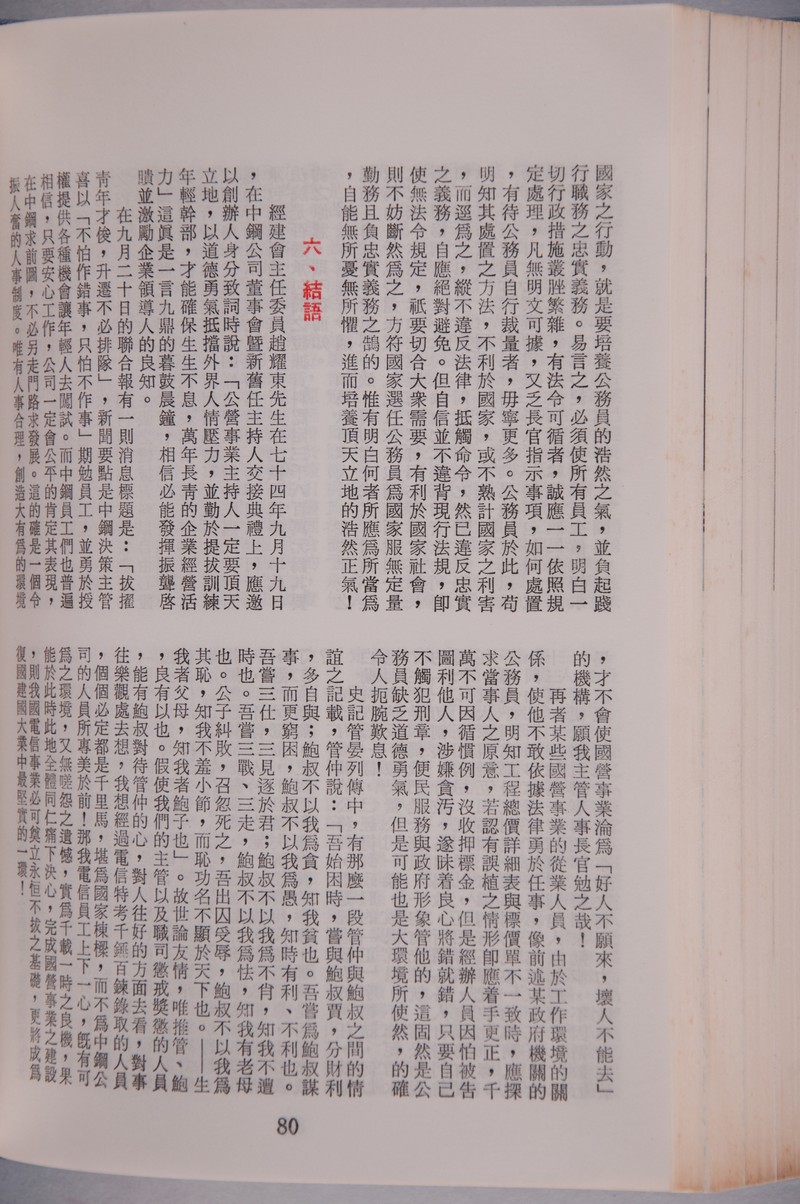 國家之行動，就是要培養公務員的浩然之氣，並負起踐
行職務之忠實義務。易言之，必須使所有員工，明白一
切行政措施叢脞繁雜，有法令可循者，誠應一一依照規
定處理，凡無明文可據，又乏長官指示事項，如何處置
，有待公務員自行裁量者，毋寧更多。公務員於此，苟
明知其處置之方法，不利於國家，或不熟計國家之利害
，而逕爲之，縱不違反法律，抵觸命令，然已違反忠實
之義務，自應絕對避免。但自信並不違背現行法規，卽
使無法令規定，祇要切合大衆需要，有利於國家社會，
則不妨斷然爲之，方符國家選任公務員爲國家服無定量
勤務且負忠實義務之鵠的。惟有明白何者所應爲所當爲
，自能無所憂無所懼，進而培養頂天立地的浩然正氣！
六、結語
經建會主任委員趙耀東先生在七十四年九月十九日
，在中鋼公司董事會暨新舊任主持人交接典禮上，應邀
以創辦人身分致詞時說：「公營事業主持人一定要頂天
立地，以道德勇氣抵擋外界人情壓力，並勤於提拔訓練
年輕幹部，才能確保生生不息，萬年長靑的企業經營活
力」這眞是一言九鼎的暮鼓晨鐘，相信必能發揮振聾啓
聵並激勵企業領導人的良知。
在九月二十日的聯合報有一則消息標題是：「拔擢
靑年才俊，升遷不必排隊」，新聞要點是中鋼決策主管
喜以「不怕作錯事，只怕不作事」期勉員工，並勇於授
權提供各種機會讓年輕人去闖試。而中鋼員工們也普遍
相信，只要安心工作，公司一定會公平的肯定其表現，
在中鋼求前圖，不必另走門路求發展。這的確是一個令
振人奮的人事制度。唯有人事合理，創造大有爲的環境
，才不會使國營事業淪爲「好人不願來，壞人不能去」
的機構，願我主管人事長官勉之哉！
再者某些國營事業的從業人員，由於工作環境的關
係，使他不敢依據法律勇於任事，像前述某政府機關的
公務員，明知工程總價詳細表與標價單不一致時，應探
求當事人之原意，若認有誤植之情形卽應着手更正，千
萬不可因循慣例，沒收押標金，但是經辦人員因怕被告
圖利他人，涉嫌貪汚，遂昧着良心將錯就錯，只要自己
不觸犯刑章，便民服務與政府形象管他的，這固然是公
務員缺乏道德勇氣，但是可能也是大環境所使然，的確
令人扼腕歎息！
史記管晏列傳中，有那麼一段管仲與鮑叔之間的情
誼之記載，管仲說：「吾始困時，嘗與鮑叔賈，分財利
，多自與；鮑叔不以我爲貪，知我貧也。吾嘗爲鮑叔謀
事，而更窮困，鮑叔不以我爲愚，知時有利、不利也。
吾嘗三仕，三見逐於君；鮑叔不以我爲不肖，知我不遭
時也。吾嘗三戰、三走，鮑叔不以我爲怯，知我有老母
也。公子糾敗，召忽死之，吾出囚受辱，鮑叔不以我爲
其恥，知我不羞小節，而恥功名不顯於天下也。——生
我者父母，知我者鮑子也」。故世論友情，唯推管、鮑
，良有以也。假使我們的主管以及職司懲戒獎懲的人員
，能有鮑叔對待管仲的心，對人往好的方面去看，對事
往樂觀處去想，我想經過電信特考千錘百鍊錄取的人員
，個個必定都是千里馬，堪爲國家棟樑，而不爲中鋼公
司的人員所專美於前！那我電信員工上下一心，旣有可
爲之環境，又無嗟怨之遺憾，實爲千載一時之良機，果
能於此時此地全體同仁痛下決心，完成國營事業之建設
，則我國電信事業必可奠立永恒不拔之基礎，更將成爲
復國建國大業中最堅實的一環！
80